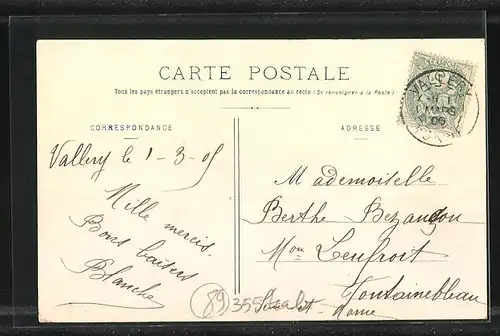 CARTE POSTALE
Tous les pays étrangers n'acceptent pas la correspondance au recto (Se renseigner à la Poste)
CORRESPONDANCE
Vallery le 1-3-05
Mille mercis.
Bons baisers
Blanche
ADRESSE
Mademoiselle
Berthe Bezançon
Mon Leufroit
Fontainebleau
Seine et Marne
(89) 355
VALLERY
MARS